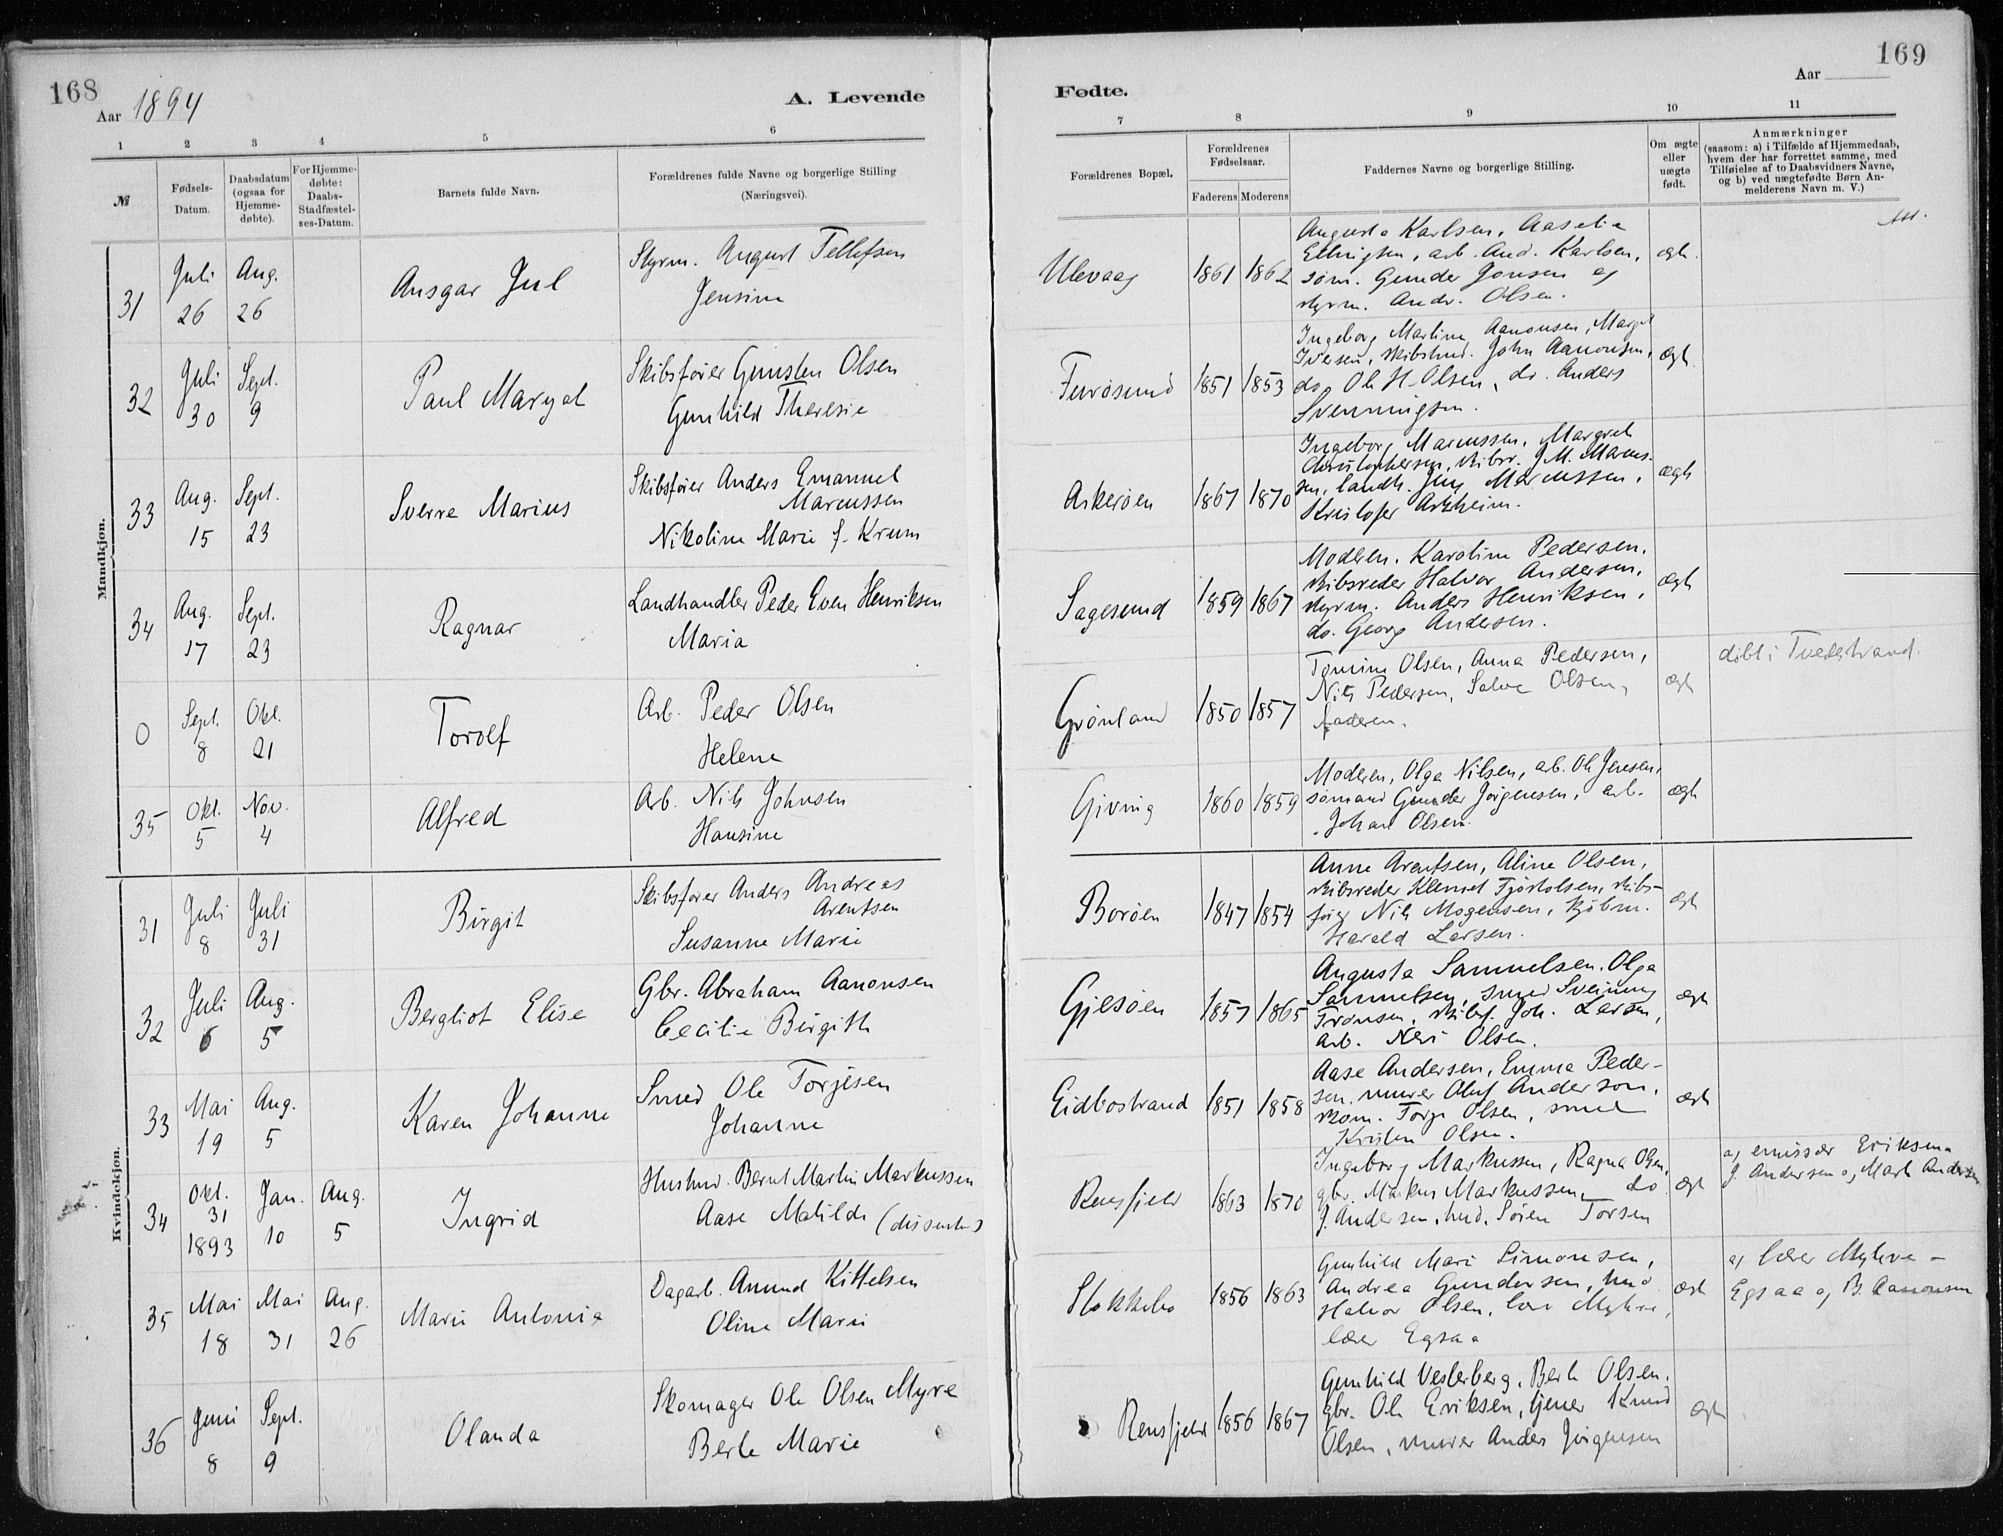 168
Aar 1894
A. Levende
1 2 3 4 5 6
№
Fødsels-Datum.
Daabsdatum (ogsaa for Hjemmedøbte).
For Hjemmedøbte: Daabs-Stadfæstelses-Datum.
Barnets fulde Navn.
Forældrenes fulde Navne og borgerlige Stilling (Næringsvei).
Mandkjøn.
31 Juli 26 Aug. 26 Ansgar Jul
Styrm. August Tellefsen
Jensine
32 Juli 30 Sept. 9 Paul Margot
Skibsfører Gunsten Olsen
Gunhild Theresie
33 Aug. 15 Sept. 23 Sverre Marius
Skibsfører Anders Emanuel
Marcussen
Nikoline Marie f. Krum
34 Aug. 17 Sept. 23 Ragnar
Landhandler Peder Even Henriksen
Maria
0 Sept. 8 Okt. 21 Torolf
Arb. Peder Olsen
Helene
35 Okt. 5 Nov. 4 Alfred
Arb. Nils Johnsen
Hansine
Kvindekjøn.
31 Juli 8 Juli 31 Birgit
Skibsfører Anders Andreas
Arentsen
Susanne Marie
32 Juli 6 Aug. 5 Bergliot Elise
Gbr. Abraham Aanonsen
Cecilie Birgith
33 Mai 19 Aug. 5 Karen Johanne
Smed Ole Torjesen
Johanne
34 Okt. 31 1893 Jan. 10 Aug. 5 Ingrid
Husmd. Bernt Martin Markussen
Aase Matilde (dissenter)
35 Mai 18 Mai 31 Aug. 26 Marie Antonie
Dagarb. Anund Kittelsen
Oline Marie
36 Juni 8 Sept. 9 Olanda
Skomager Ole Olsen Myre
Berte Marie
169
Fødte.
Aar
7 8 9 10 11
Forældrenes Bopæl.
Forældrenes Fødselsaar.
Faderens Moderens
Faddernes Navne og borgerlige Stilling.
Om ægte eller uægte født.
Anmærkninger
(saasom: a) i Tilfælde af Hjemmedaab,
hvem der har forrettet samme, med
Tilføielse af to Daabsvidners Navne,
og b) ved uægtefødte Børn Anmelderens Navn m. V.)
Ulevaag 1861 1862
Augusta Karlsen, Aaselie
Ellingsen, arb. And. Karlsen,
søm. Gunder Jonsen og
styrm. Andr. Olsen.
ægt.
Furøsund 1851 1853
Ingeborg Martine Aanonsen, Margit
Iversen, skibstmd. John Aanonsen,
do. Ole H. Olsen, do. Anders
Svenningsen.
ægt.
Askerøen 1867 1870
Ingeborg Marcussen, Margret
Christophersen, skibsr. J M. Marcussen,
landh. Jens Marcussen,
Kristofer Askheim.
ægte
Sagesund 1859 1867
Moderen, Karoline Pedersen,
skibsreder Halvor Andersen,
styrm. Anders Henriksen,
do. Georg Andersen.
ægte
Grønland 1850 1857
Tomine Olsen, Anna Pedersen,
Nils Pedersen, Salve Olsen,
faderen.
ægte
døbt i Tvedestrand.
Gjving 1860 1859
Moderen, Olga Nilsen, arb. Ole Jensen,
sømand Gunder Jørgensen, arb.
Johan Olsen.
ægte
Borøen 1847 1854
Anne Arentsen, Aline Olsen,
skibsreder Klemet Fjortolsen, skibsfører
Nils Mogensen, kjøbm.
Harald Larsen.
ægte
Gjesøen 1857 1865
Augusta Samuelsen, Olga
Samuelsen, smed Sveinung
Trønsen, skibsf. Joh. Larsen,
arb. Neri Olsen.
ægte
Eidbostrand 1851 1858
Aase Andersen, Emma Pedersen,
murer Oluf Anderson,
skom. Torje Olsen, smed
Kristen Olsen.
ægte
Rensfjeld 1863 1870
Ingeborg Markussen, Ragna Olsen,
gbr. Markus Markussen, do
J. Andersen, hmd. Søren Torsen
ægt
a) emissær Eriksen
J. Andersen og Marte Andersen
Stokkebo 1856 1863
Gunhild Mari Simonsen,
Andrea Gundersen, hmd
Halvor Olsen, lær. Myhre,
lærer Egsaa
ægt
a) lærer Myhre -
Egsaa og B. Aanonsen
Rensfjeld 1856 1867
Gunhild Vesterberg, Berte Olsen,
gbr. Ole Eriksen, tjener Knud
Olsen, murer Anders Jørgensen
ægte